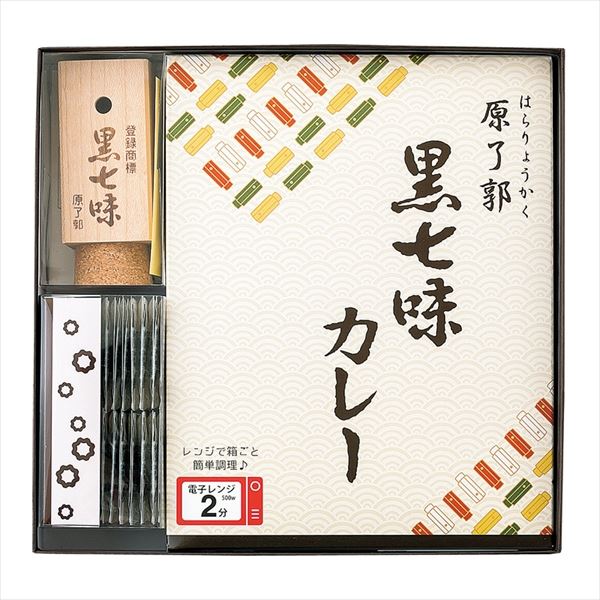 登録商標
黒七味
原了郭
はらりょうかく
原了郭
黒七味
カレー
レンジで箱ごと
簡単調理♪
電子レンジ
500w
2分